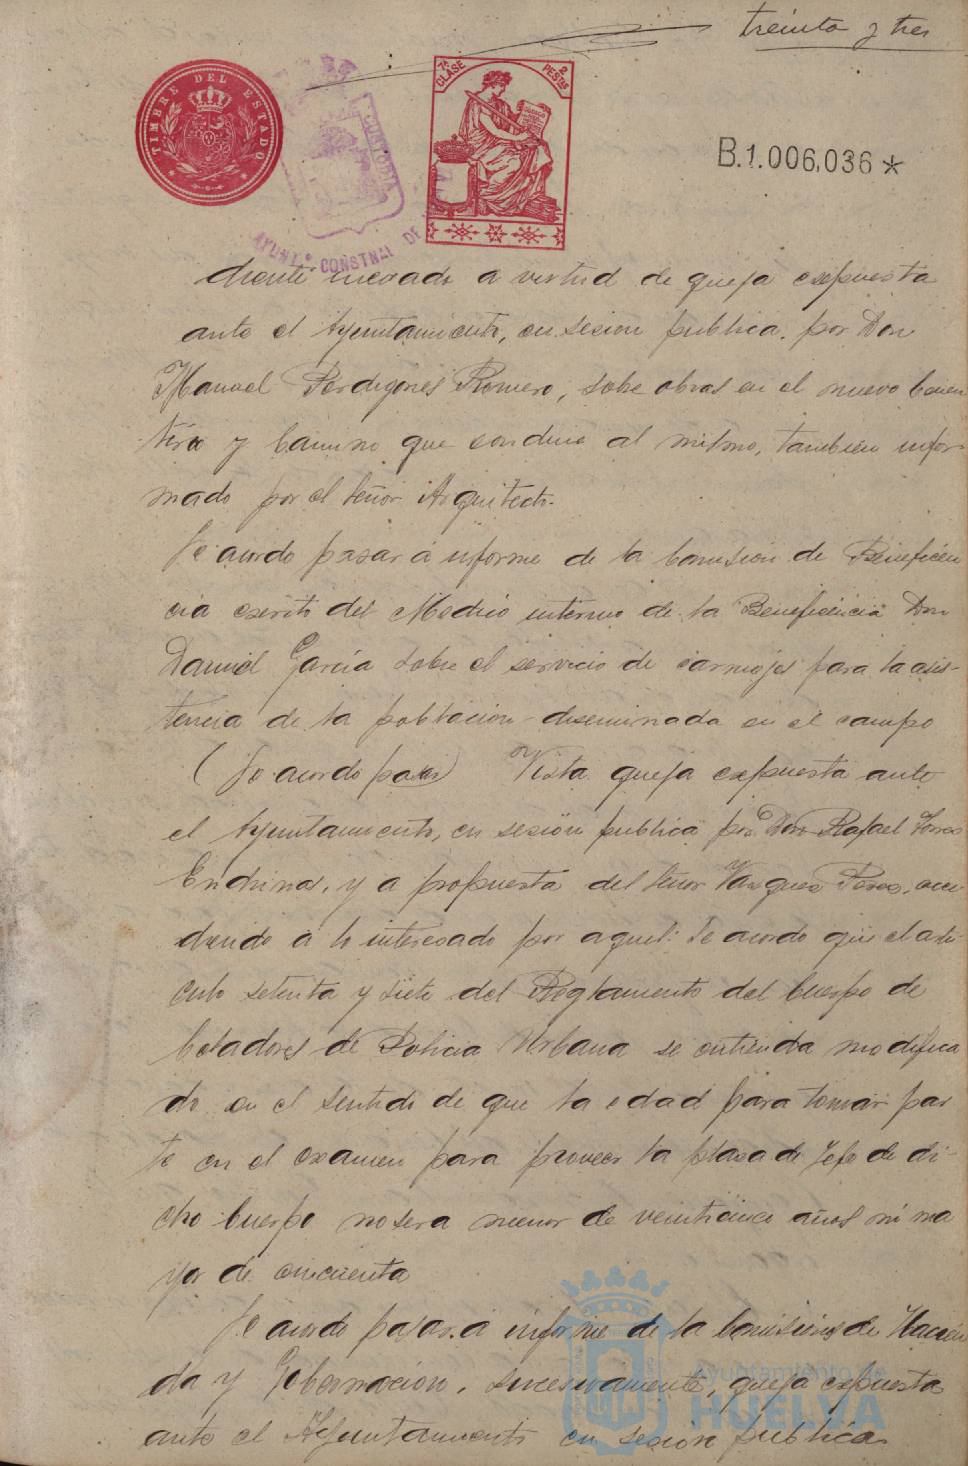 treinta y tres
TIMBRE DEL ESTADO
CONTADURIA
AYUNT.º CONSTNAL DE
7ª CLASE
2 PESTAS
B.1.006,036 *
diente incoado a virtud de queja expuesta
ante el Ayuntamiento, en sesion publica, por Don
Manuel Perdigones Romero, sobre obras en el nuevo Cemen
terio y Camino que conduce al mismo, tambien infor-
mado por el Señor Arquitecto.
Se acordo pasar a informe de la Comision de Beneficen
cia escrito del Medico interno de la Beneficencia Don
Daniel García sobre el servicio de carruajes para la asis-
tencia de la poblacion diseminada en el campo
(Se acordo pasar) Vista queja expuesta ante
el Ayuntamiento, en sesión publica por Don Rafael Torres
Endrina, y a propuesta del Señor Vazquez Perez, acce
diendo a lo interesado por aquel: Se acordo que el arti-
culo setenta y siete del Reglamento del Cuerpo de
Celadores de Policia Urbana se entienda modifica
do en el sentido de que la edad para tomar par
te en el examen para proveer la plaza de Jefe de di-
cho Cuerpo no sera menor de veinticinco años ni ma
yor de cincuenta
Se acordo pasar a informe de la Comisiones de Hacien
da y Gobernacion, sucesivamente, queja expuesta
ante el Ayuntamiento en sesion publica
Ayuntamiento de
HUELVA